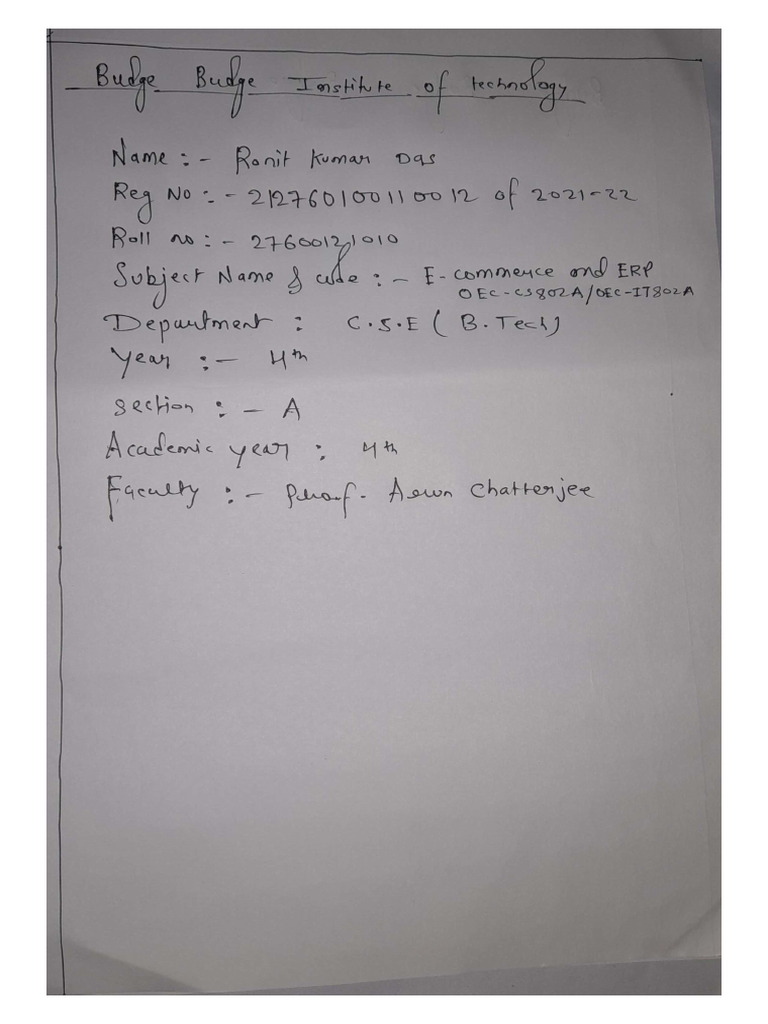 Budge Budge Institute of technology
Name :- Ronit Kumar Das
Reg No :- 212760100110012 of 2021-22
Roll no :- 27600121010
Subject Name & code :- E-commerce and ERP
OEC-CS802A/OEC-IT802A
Department : C.S.E ( B.Tech)
Year :- 4th
Section :- A
Academic year : 4th
Faculty :- Prof. Chatterjee